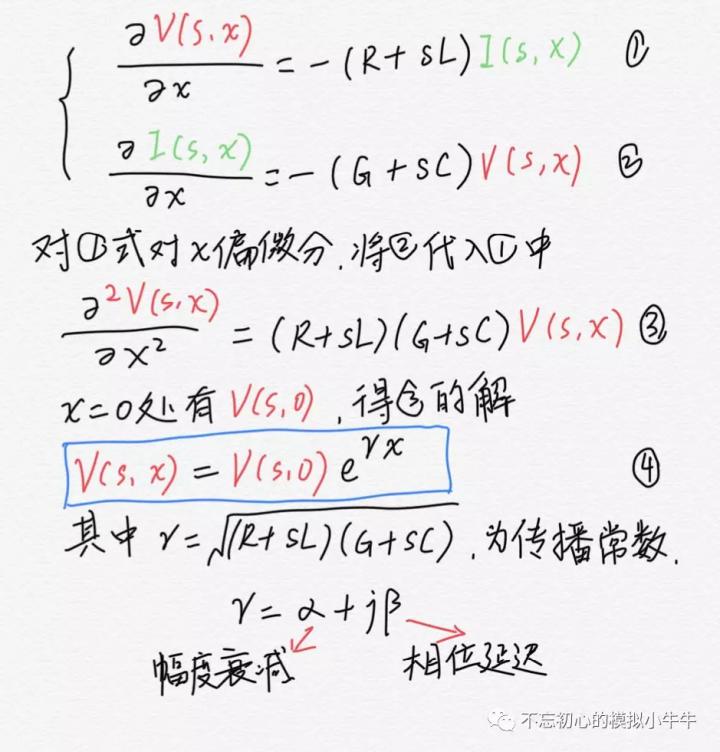 ∂V(s,x)/∂x = -(R+sL)I(s,x) ①
∂I(s,x)/∂x = -(G+sC)V(s,x) ②
对①式对x偏微分,将②代入①中
∂²V(s,x)/∂x² = (R+sL)(G+sC)V(s,x) ③
x=0处有V(s,0),得③的解
V(s,x) = V(s,0)e^γx ④
其中γ=√(R+sL)(G+sC),为传播常数.
γ=α+jβ
幅度衰减 相位延迟
不忘初心的模拟小牛牛